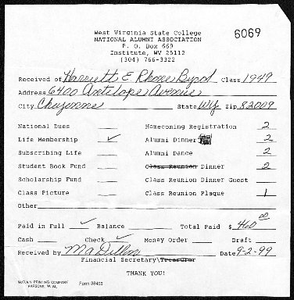 West Virginia State College
NATIONAL ALUMNI ASSOCIATION
P. O. Box 669
Institute, WV 25112
(304) 766-3322
6069
Received of Harriett E. Rhone Byrd Class 1949
Address 6400 Antelope Avenue
City Cheyenne State Wy Zip 82009
National Dues Homecoming Registration 2
Life Membership ✓ Alumni Dinner 2
Subscribing Life Alumni Dance 2
Student Book Fund Class Reunion Dinner 2
Scholarship Fund Class Reunion Dinner Guest
Class Picture Class Reunion Plaque 1
Other
Paid in Full ✓ Balance Total Paid $ 460.00
Cash Check ✓ Money Order Draft
Received by 9-2-99
Financial Secretary/Treasurer
THANK YOU!